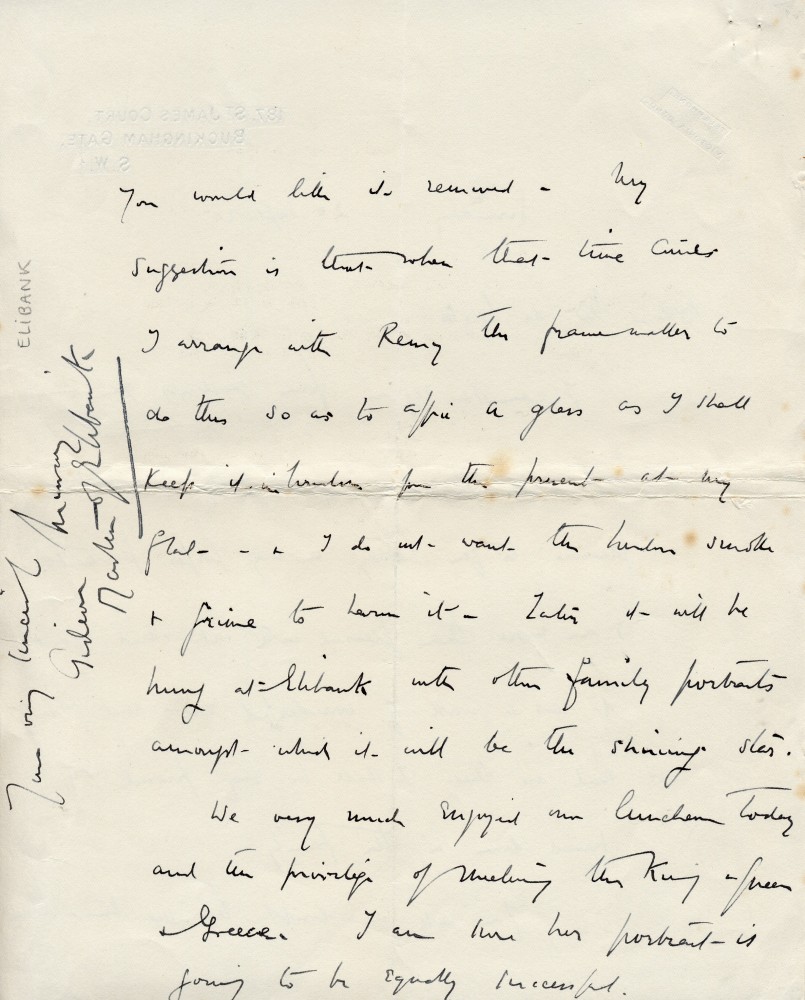 You would like it removed - My
suggestion is that when that time comes
I arrange with Remy the frame maker to
do this so as to affix a glass as I shall
keep it in London for the present at my
flat - - & I do not want the London smoke
& grime to harm it - Later it will be
hung at Elibank with other family portraits
amongst which it will be the shining star.
We very much enjoyed our luncheon today
and the privilege of meeting the King & Queen
of Greece. I am sure her portrait is
going to be equally successful.
Yours very sincerely
Gideon Murray
Master of Elibank
ELIBANK
137 ST JAMES COURT
BUCKINGHAM GATE.
S.W.1